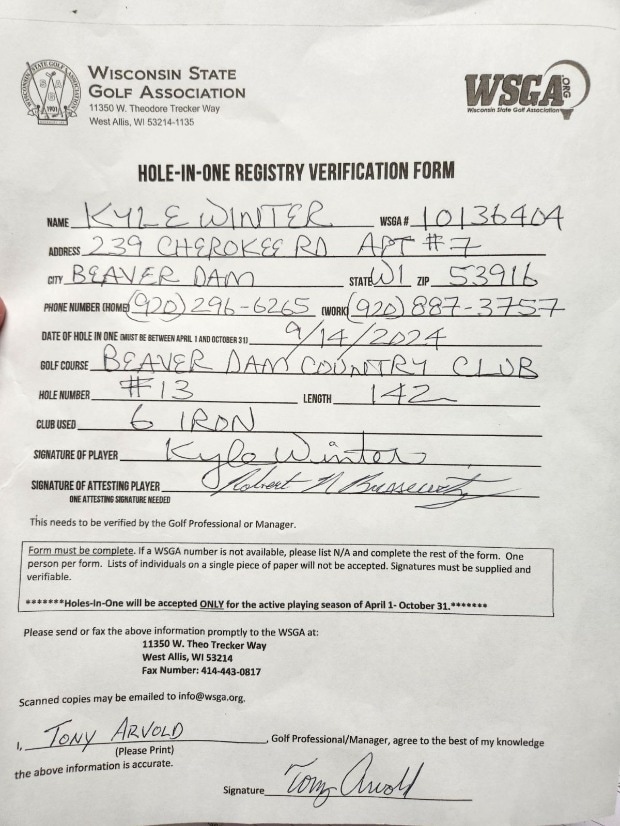 WISCONSIN STATE
GOLF ASSOCIATION
11350 W. Theodore Trecker Way
West Allis, WI 53214-1135
WSGA.ORG
Wisconsin State Golf Association
HOLE-IN-ONE REGISTRY VERIFICATION FORM
NAME KYLE WINTER WSGA # 10136404
ADDRESS 239 CHEROKEE RD APT #7
CITY BEAVER DAM STATE WI ZIP 53916
PHONE NUMBER (HOME) (920) 296-6265 (WORK) (920) 887-3757
DATE OF HOLE IN ONE (MUST BE BETWEEN APRIL 1 AND OCTOBER 31) 9/14/2024
GOLF COURSE BEAVER DAM COUNTRY CLUB
HOLE NUMBER #13 LENGTH 142
CLUB USED 6 IRON
SIGNATURE OF PLAYER Kyle Winter
SIGNATURE OF ATTESTING PLAYER Robert N
ONE ATTESTING SIGNATURE NEEDED
This needs to be verified by the Golf Professional or Manager.
Form must be complete. If a WSGA number is not available, please list N/A and complete the rest of the form. One
person per form. Lists of individuals on a single piece of paper will not be accepted. Signatures must be supplied and
verifiable.
*******Holes-In-One will be accepted ONLY for the active playing season of April 1- October 31.*******
Please send or fax the above information promptly to the WSGA at:
11350 W. Theo Trecker Way
West Allis, WI 53214
Fax Number: 414-443-0817
Scanned copies may be emailed to info@wsga.org.
I, TONY ARVOLD, Golf Professional/Manager, agree to the best of my knowledge
(Please Print)
the above information is accurate.
Signature Tony Arvold